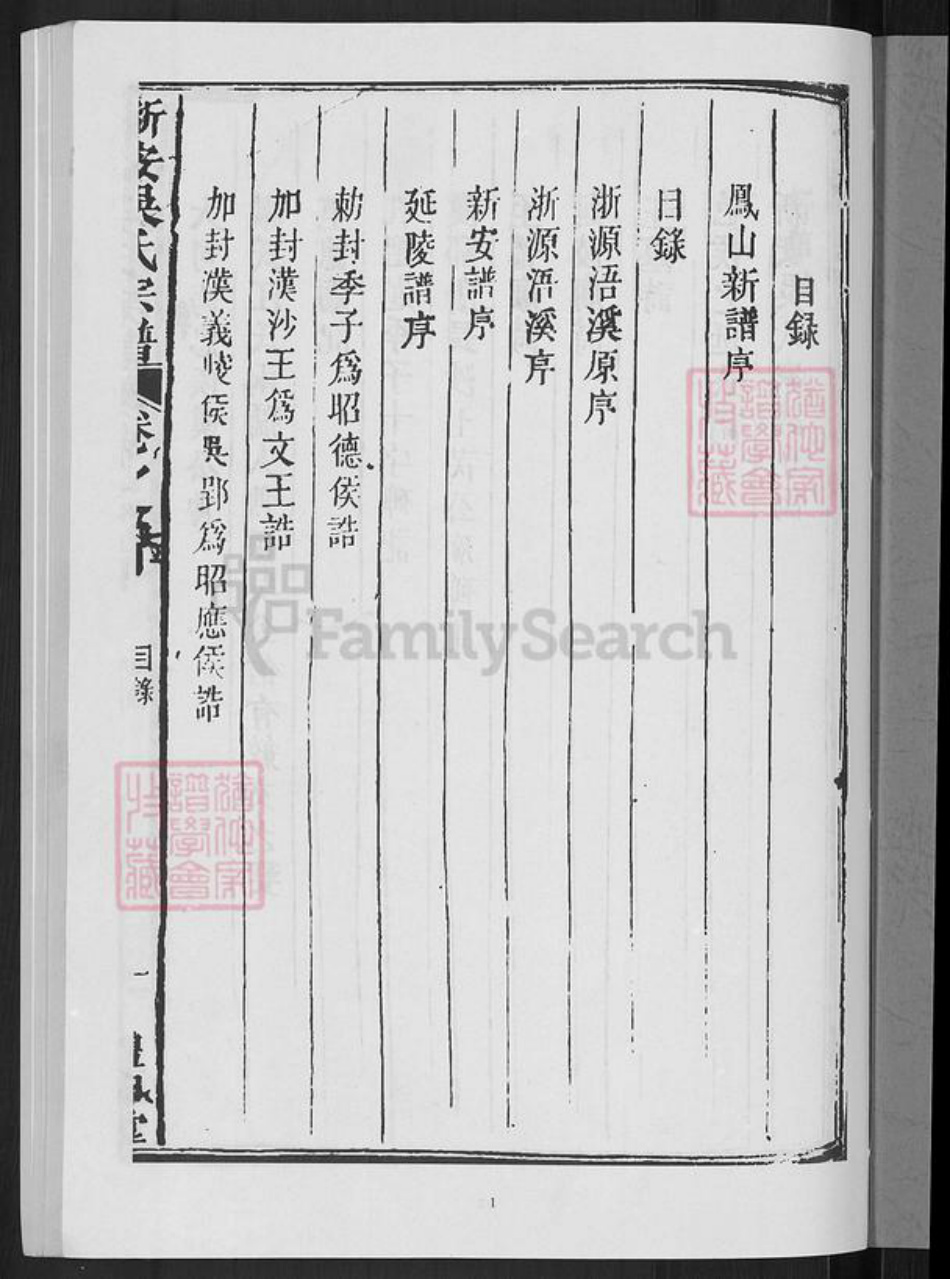 目錄
鳳山新譜序
目錄
浙源浯溪原序
浙源浯溪序
新安譜序
延陵譜序
勅封季子爲昭德侯誥
加封漢沙王爲文王誥
加封漢義陵侯吳郢爲昭應侯誥
新安吳氏宗譜
目錄
一
譜學會
收藏
譜學會
收藏
FamilySearch
1